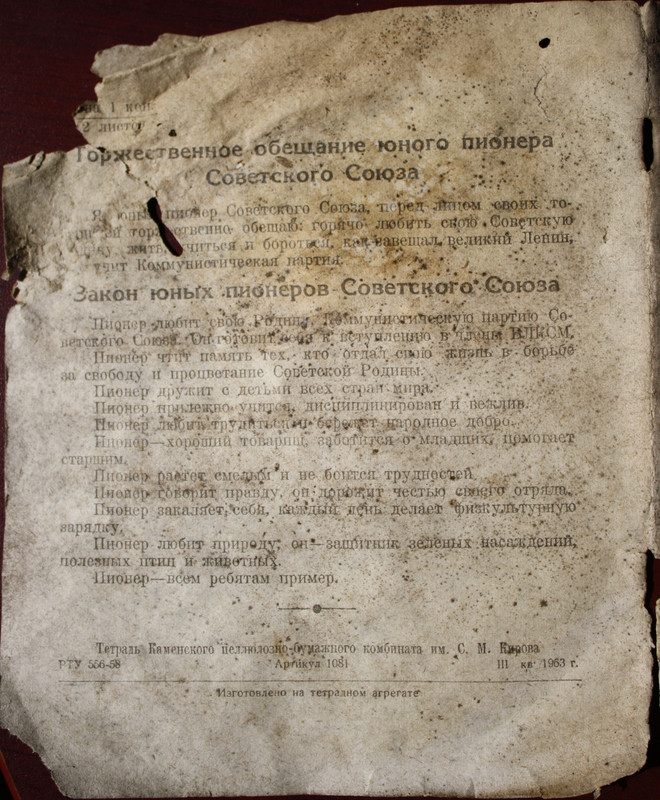 1 коп.
2 листо
Торжественное обещание юного пионера
Советского Союза
Я, юный пионер Советского Союза, перед лицом своих то-
торжественно обещаю: горячо любить свою Советскую
жить, учиться и бороться, как завещал великий Ленин,
учит Коммунистическая партия.
Закон юных пионеров Советского Союза
Пионер любит свою Родину, Коммунистическую партию Со-
ветского Союза. Он готовит себя к вступлению в члены ВЛКСМ.
Пионер чтит память тех, кто отдал свою жизнь в борьбе
за свободу и процветание Советской Родины.
Пионер дружит с детьми всех стран мира.
Пионер прилежно учится, дисциплинирован и вежлив.
Пионер любит трудиться и бережет народное добро.
Пионер—хороший товарищ, заботится о младших, помогает
старшим.
Пионер растет смелым и не боится трудностей.
Пионер говорит правду, он дорожит честью своего отряда.
Пионер закаляет себя, каждый день делает физкультурную
зарядку.
Пионер любит природу; он—защитник зеленых насаждений,
полезных птиц и животных.
Пионер—всем ребятам пример.
Тетраль Каменского целлюлозно-бумажного комбината им. С. М. Кирова
РТУ 556-58 Артикул 1081 III кв 1963 г.
Изготовлено на тетрадном агрегате